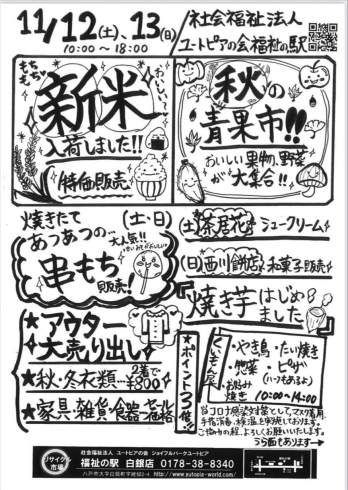 11/12(土)、13(日)
10:00〜18:00
社会福祉法人
ユートピアの会福祉の駅
もちもち♡
おいしいっ!
新米
入荷しました!!
特価販売
秋の
青果市!!
おいしい果物、野菜
が大集合!!
焼きたて
(土・日)
あつあつの…
大人気!!
串もち
販売!
(土)茶居花 シュークリーム
(日)西川餅店 和菓子販売
焼き芋はじめ
ました
★アウター
大売り出し
★秋・冬衣類…2着で¥800
★家具・雑貨・食器…セール価格
★ポイント3倍!!
くいもんや
・やき鳥・たい焼き
・惣菜・ピザ
(いつもあるよ)
・お好み焼き
10:00〜14:00
コロナ感染対策として、マスク着用、
手指消毒、検温を実施しております。
ご協力の程、よろしくお願いいたします。
うら面もあります→
リサイクル市場
社会福祉法人 ユートピアの会 ジョイフルパークユートピア
福祉の駅 白銀店 0178-38-8340
http://www.yutopia-world.com/